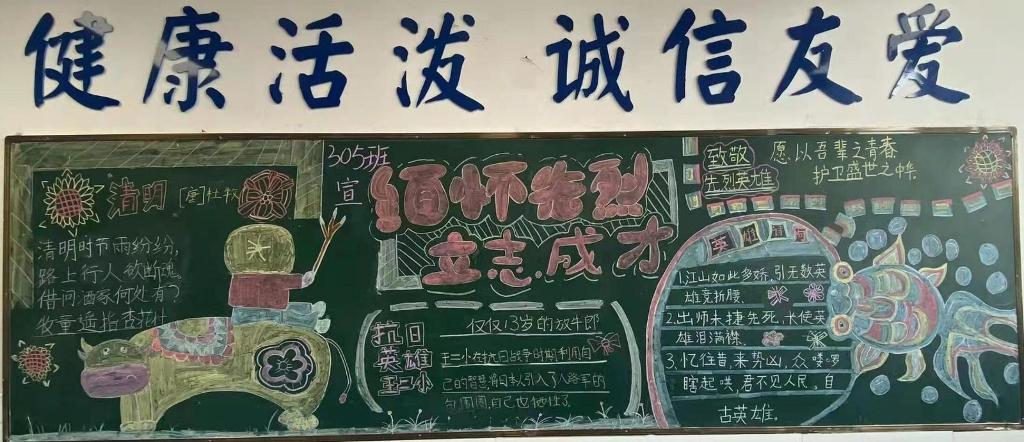 健康活泼 诚信友爱
清明 [唐]杜牧
清明时节雨纷纷,
路上行人欲断魂
借问酒家何处有?
牧童遥指杏花村
305班
宣
缅怀先烈
立志成才
抗日
英雄
王二小
仅仅13岁的放牛郎
王二小在抗日战争时期利用自
己的智慧将日本人引入了八路军的
包围圈,自己也牺牲了
致敬
先烈英雄
愿以吾辈之青春
护卫盛世之中华
英雄
1.江山如此多娇,引无数英
雄竞折腰。
2.出师未捷先死,长使英
雄泪满襟。
3.忆往昔,来势凶,众喽啰
瞎起哄,君不见人民,自
古英雄。